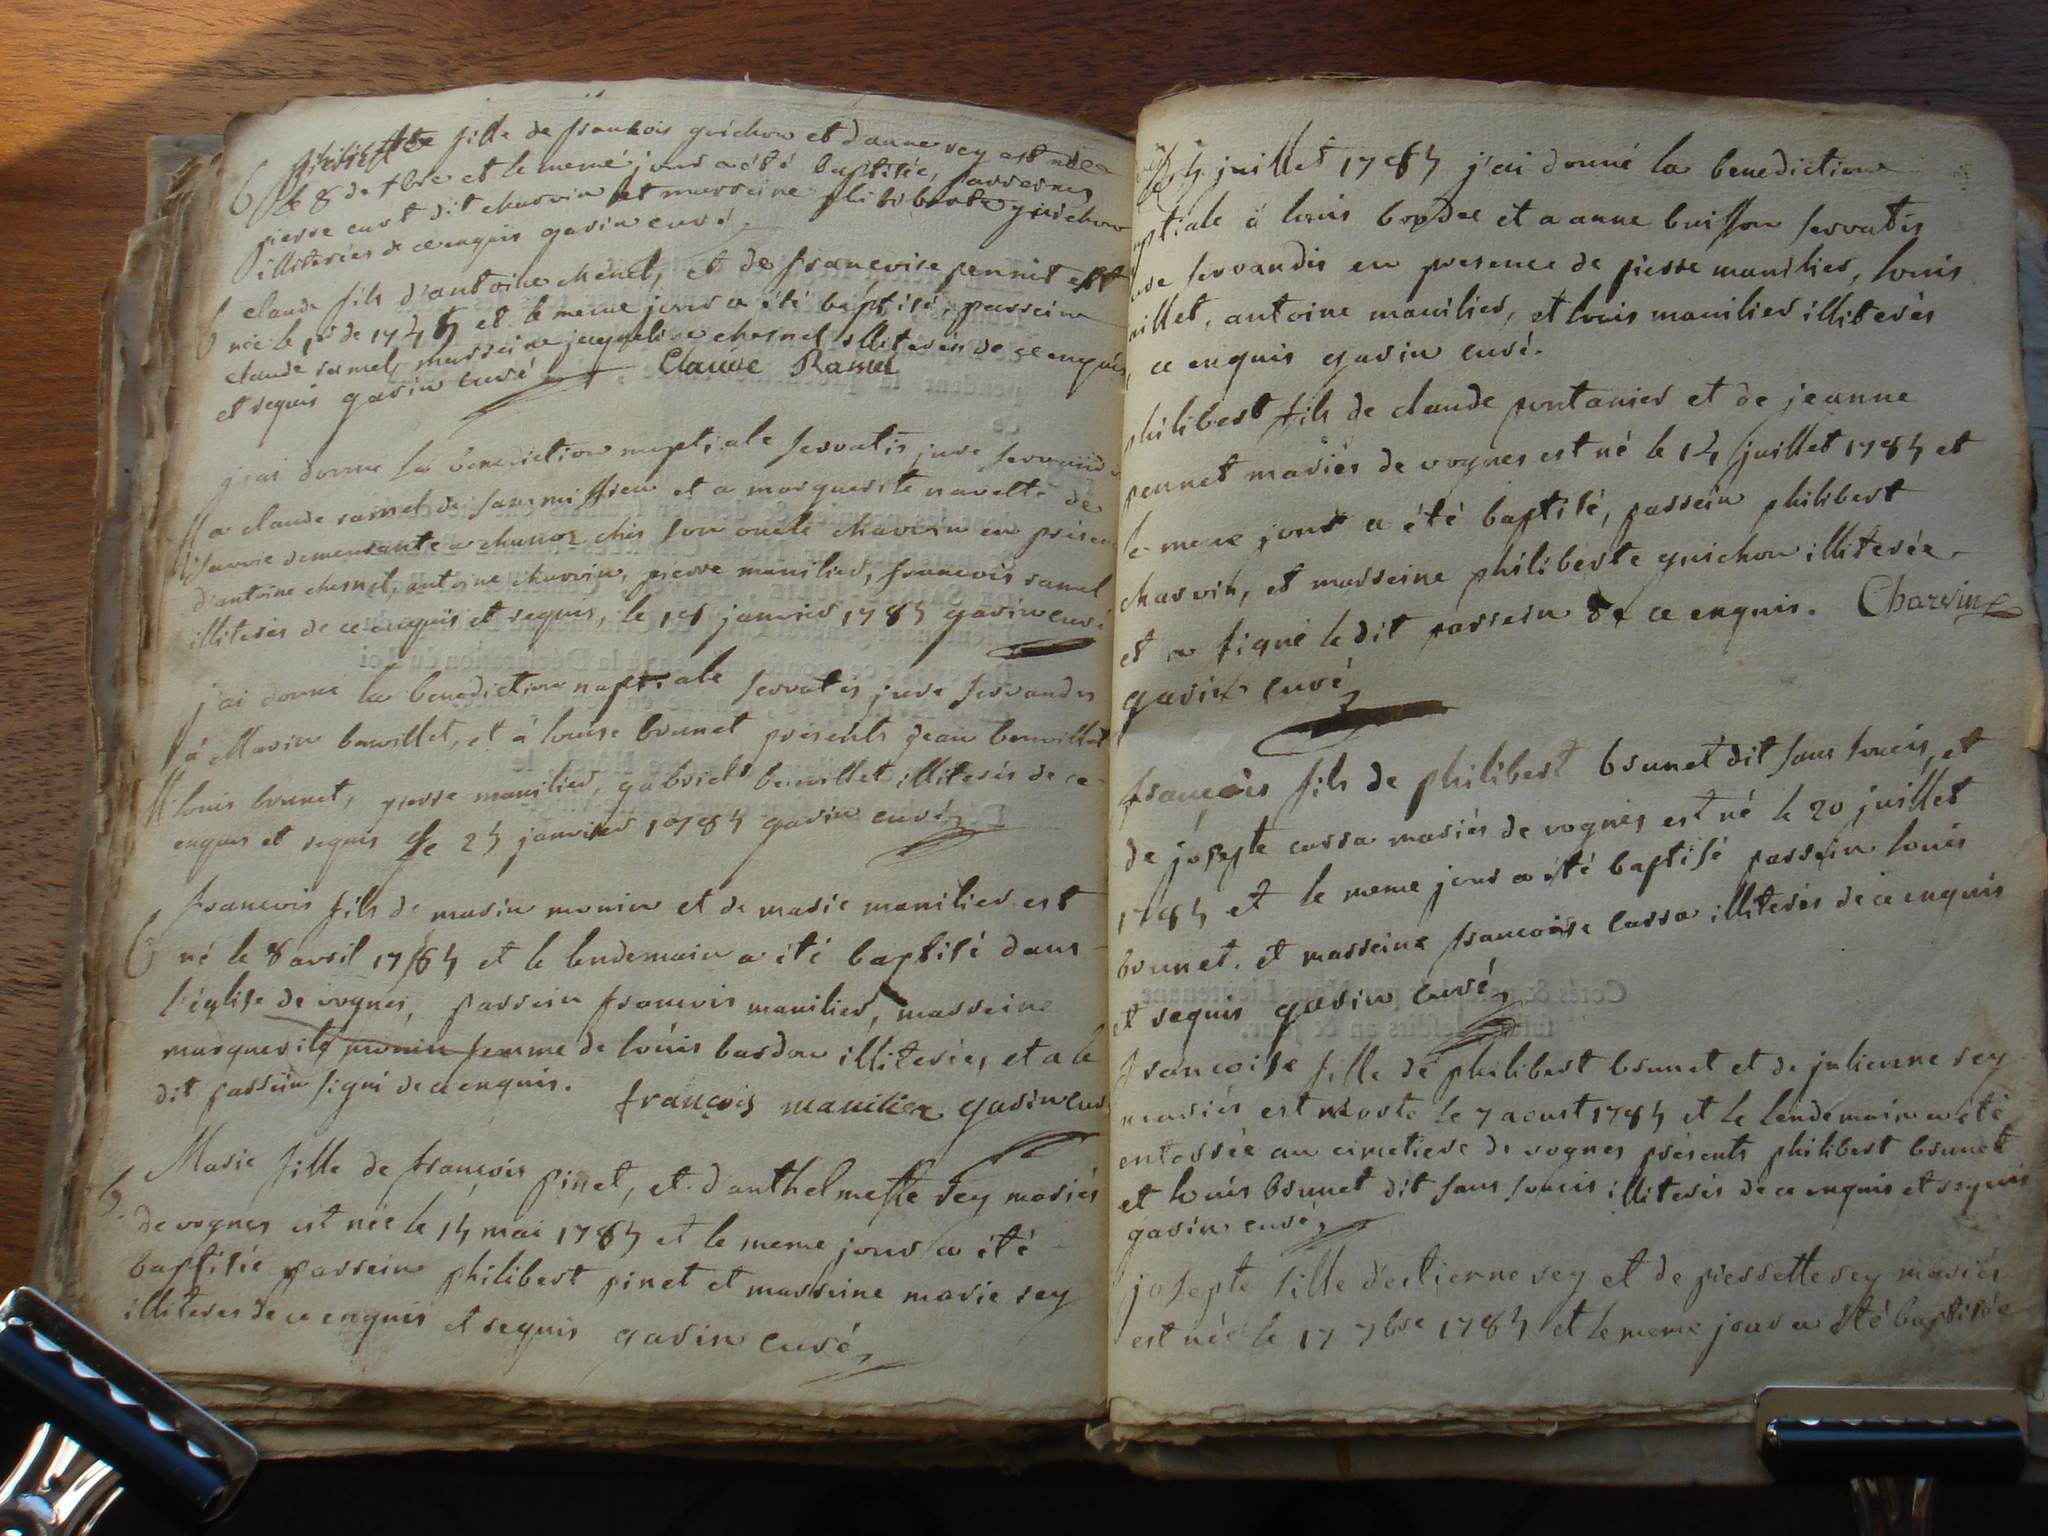 fille de francois guichon et d'anne rey est née
le 8 de et le meme jour a été baptisée, parrein
pierre curt dit charvin et marreine philiberte guichon
illiterés de ce enquis gavin curé
claude fils d'antoine chenel, et de francoise pennet est
née le de et le meme jour a été baptisé, parrein
claude ramel, marreine jaqueline chesnel illiterés de ce enquis
et requis gavin curé Claude Ramel
j'ai donné la benediction nuptiale servatis jure servandis
M a claude ramel de et a marguerite navette de
demeurante a chanoz chés son oncle charvin en présence
d'antoine chesnel, antoine charvin, pierre manilier, francois ramel
illiterés de ce enquis et requis, le janvier 1784 gavin curé
j'ai donné la benediction nuptiale servatis jure servandis
à Marin bouvillet, et à louise brunet présents jean bouvillet
M louis brunet, pierre manilier, gabriel bouvillet illiterés de ce
enquis et requis le 24 janvier 1784 gavin curé
francois fils de marin monin et de marie manilier est
B né le 8 avril 1784 et le lendemain a été baptisé dans
l'église de vognes, parrein francois manilier, marreine
marguerite monin femme de louis bardon illiterée, et a le
dit parrein signé de ce enquis. françois manilier gavin curé
Marie fille de françois pinet, et d'anthelmette rey mariés
b de vognes est née le 14 mai 1784 et le meme jour a été
baptisée parrein philibert pinet et marreine marie rey
illiterés de ce enquis et requis gavin curé
juillet 1784 j'ai donné la benediction
nuptiale à louis bordet et a anne buisson servatis
jure servandis en presence de pierre manilier, louis
antoine manilier, et louis manilier illiterés
ce enquis gavin curé.
philibert fils de claude pontanier et de jeanne
pennet mariés de vognes est né le 14 juillet 1784 et
le meme jour a été baptisé, parrein philibert
charvin, et marreine philiberte guichon illiterée
et a signé le dit parrein de ce enquis. Charvin
gavin curé
françois fils de philibert brunet dit sans soucis, et
de josepte carra mariés de vognes est né le 20 juillet
1784 et le meme jour a été baptisé parrein louis
brunet. et marreine francoise carra illiterés de ce enquis
et requis gavin curé
francoise fille de philibert brunet et de julienne rey
mariés est morte le 7 aoust 1784 et le lendemain a été
enterrée au cimetiere de vognes présents philibert brunet
et louis brunet dit sans soucis illiterés de ce enquis et requis
gavin curé
josepte fille d'estienne rey et de pierrette rey mariés
est née le 17 7bre 1784 et le meme jour a été baptisée